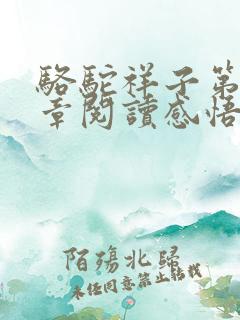 駱駝祥子第
章閱讀感悟
陌殤北歸
未任同意禁止轉載